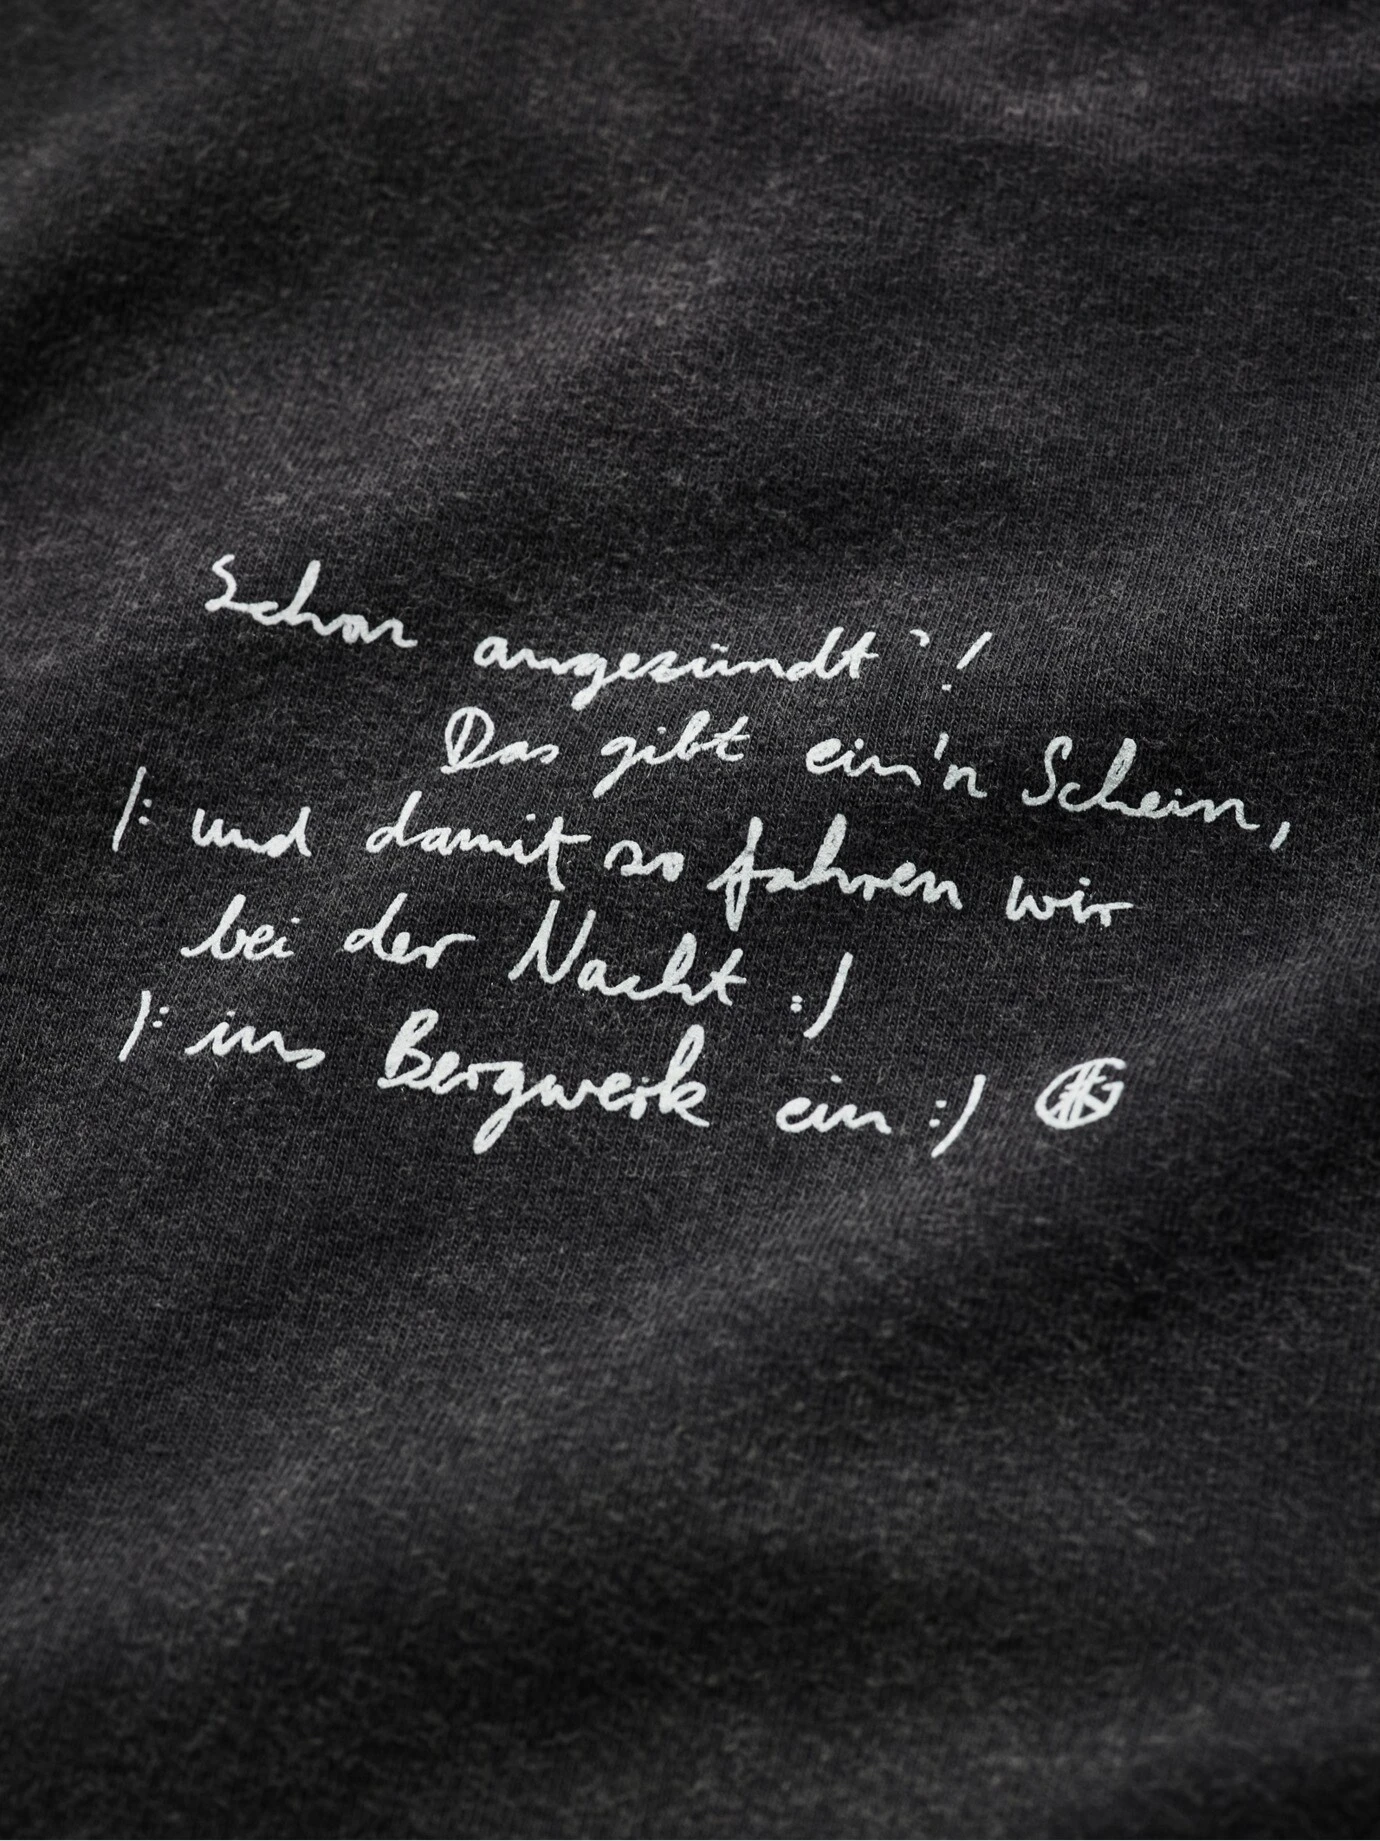 Schon angezündt'!
Das gibt ein'n Schein,
|: und damit so fahren wir
bei der Nacht :|
|: ins Bergwerk ein :|